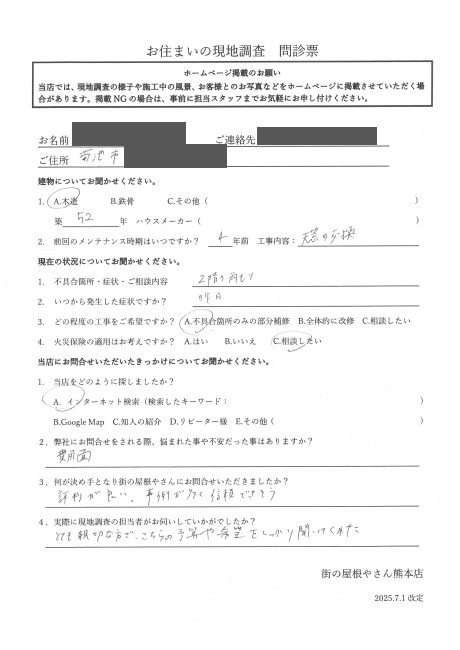 お住まいの現地調査　問診票
ホームページ掲載のお願い
当店では、現地調査の様子や施工中の風景、お客様とのお写真などをホームページに掲載させていただく場
合があります。掲載 NG の場合は、事前に担当スタッフまでお気軽にお申し付けください。
お名前　ご連絡先
ご住所　菊池市
建物についてお聞かせください。
1. A.木造　B.鉄骨　C.その他（　）
築 52 年　ハウスメーカー（　）
2. 前回のメンテナンス時期はいつですか？ 4 年前　工事内容：
現在の状況についてお聞かせください。
1. 不具合箇所・症状・ご相談内容　2階の雨もり
2. いつから発生した症状ですか？　昨日
3. どの程度の工事をご希望ですか？ A.不具合箇所のみの部分補修　B.全体的に改修　C.相談したい
4. 火災保険の適用はお考えですか？ A.はい　B.いいえ　C.相談したい
当店にお問合せいただいたきっかけについてお聞かせください。
1. 当店をどのように探しましたか？
A. インターネット検索（検索したキーワード：　）
B.Google Map　C.知人の紹介　D.リピーター様　E.その他（　）
2. 弊社にお問合せをされる際、悩まれた事や不安だった事はありますか？
費用面
3. 何が決め手となり街の屋根やさんにお問合せいただきましたか？
評判が良い、事例が多く信頼できそう
4. 実際に現地調査の担当者がお伺いしていかがでしたか？
とても親切な方で、こちらの予算や希望をしっかり聞いてくれた
街の屋根やさん熊本店
2025.7.1 改定